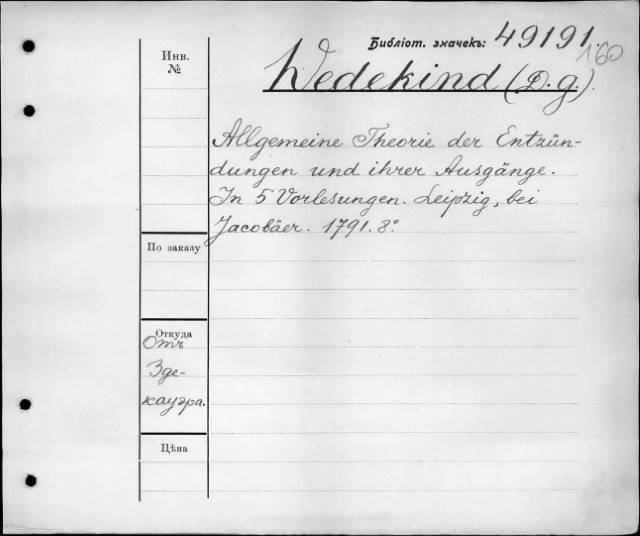 Библіот. значекъ: 49191.
160
Инв.
№
Wedekind (D. g.)
Allgemeine Theorie der Entzün-
dungen und ihrer Ausgänge.
In 5 Vorlesungen. Leipzig, bei
Jacobäer. 1791. 8°
По заказу
Откуда
Отъ
Зде-
кауэра.
Цѣна